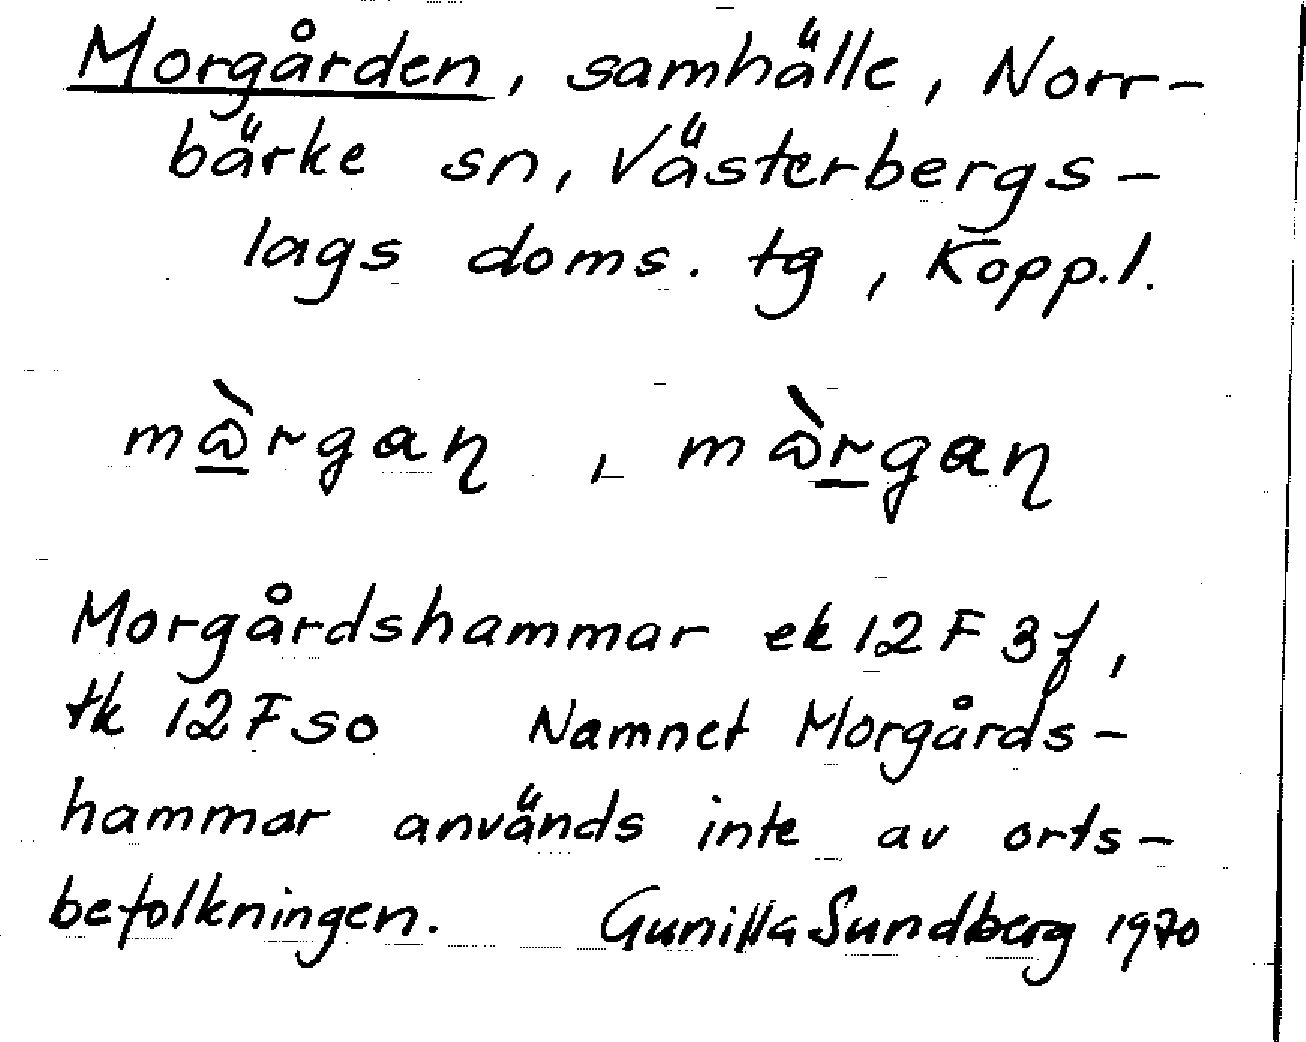 Morgården, samhälle, Norr-
bärke sn, Västerbergs-
lags doms. tg, Kopp.l.
mὼ̱rgaɳ, mὼṟgaɳ
Morgårdshammar ek 12 F 3f,
tk 12 F SO Namnet Morgårds-
hammar används inte av orts-
befolkningen. Gunilla Sundberg 1970